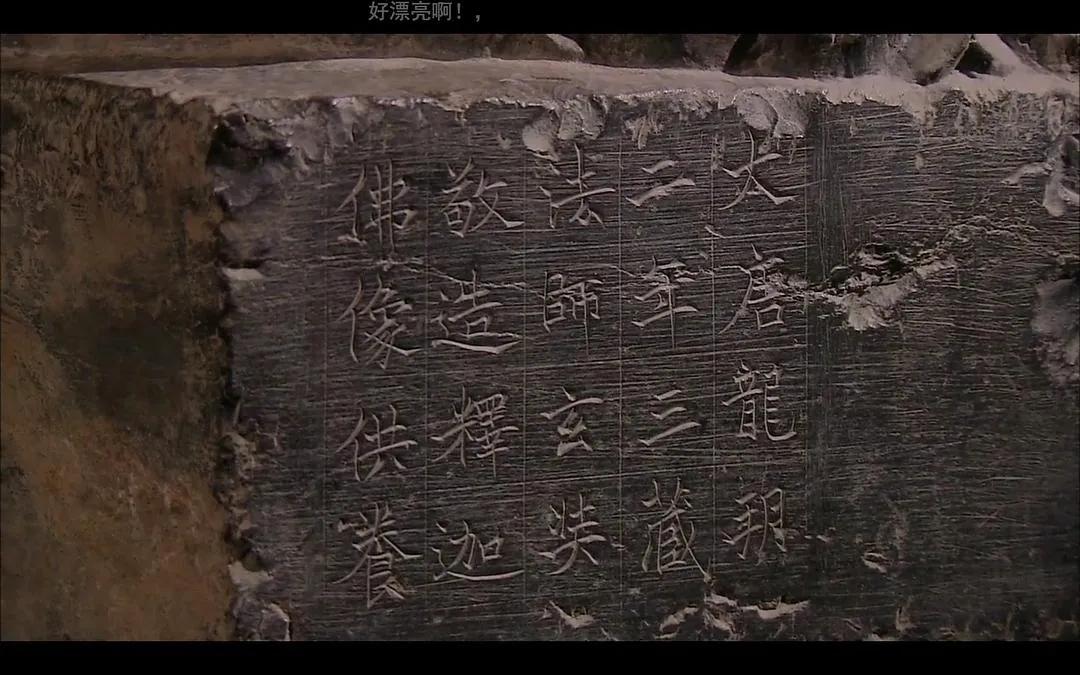 好漂亮啊！，
大唐龍朔
二年三藏
法師玄奘
敬造釋迦
佛像供養